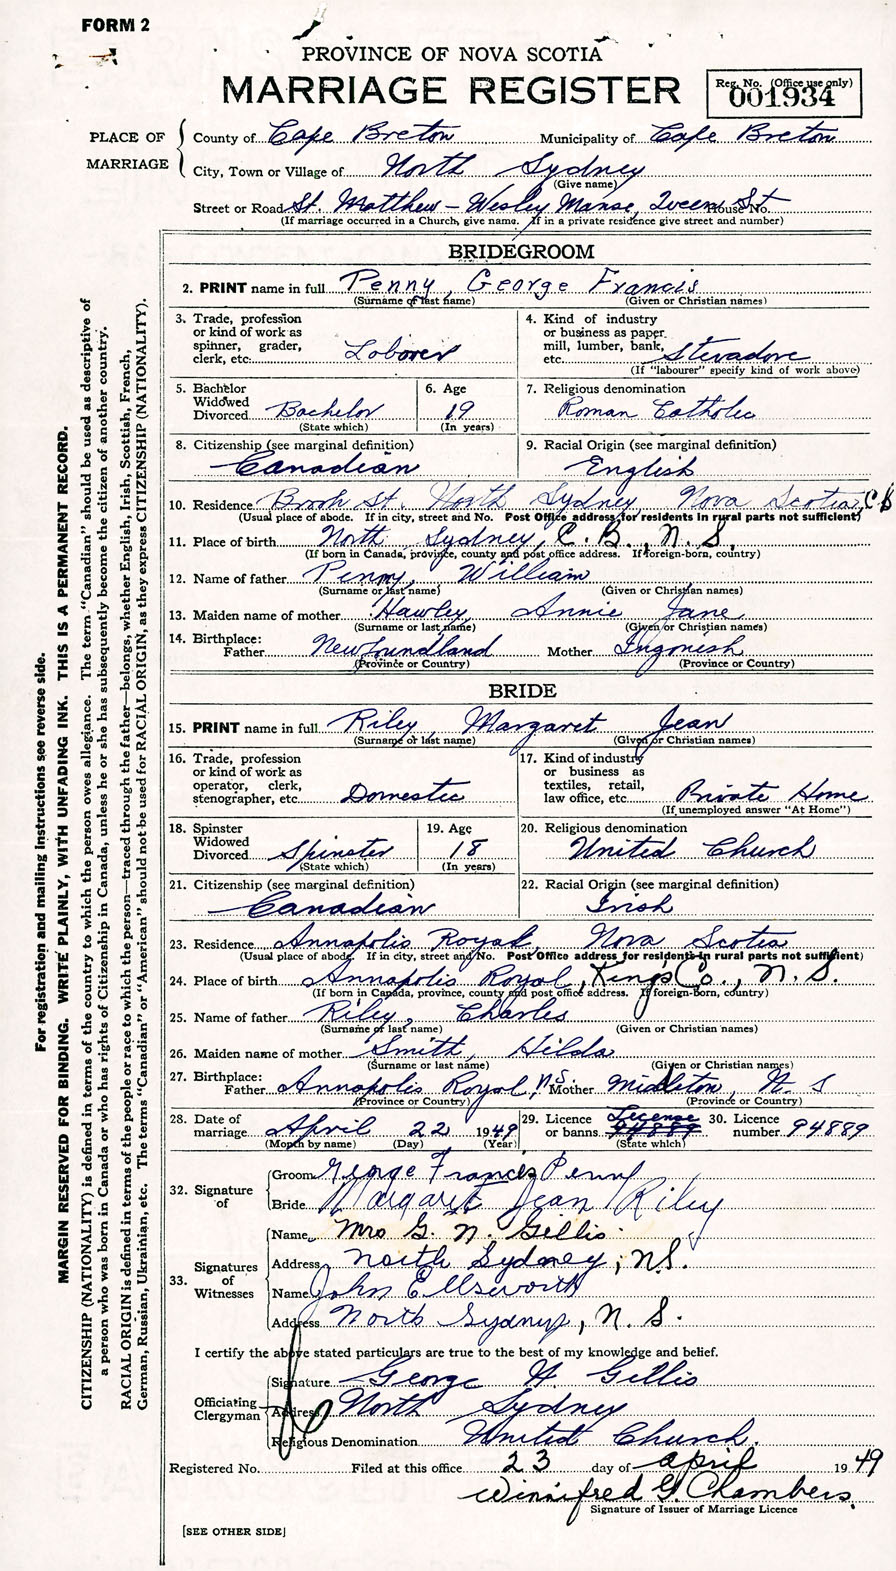 FORM 2
PROVINCE OF NOVA SCOTIA
MARRIAGE REGISTER
Reg. No. (Office use only)
001934
PLACE OF MARRIAGE
County of Cape Breton Municipality of Cape Breton
City, Town or Village of North Sydney
(Give name)
Street or Road St. Matthew - Wesley Manse, Queen St House No.
(If marriage occurred in a Church, give name. If in a private residence give street and number)
BRIDEGROOM
2. PRINT name in full Penny, George Francis
(Surname or last name) (Given or Christian names)
3. Trade, profession or kind of work as spinner, grader, clerk, etc. Laborer
4. Kind of industry or business as paper mill, lumber, bank, etc. Stevadore
(If "labourer" specify kind of work above)
5. Bachelor Widowed Divorced Bachelor
(State which)
6. Age 19
(In years)
7. Religious denomination
Roman Catholic
8. Citizenship (see marginal definition)
Canadian
9. Racial Origin (see marginal definition)
English
10. Residence Brook St. North Sydney, Nova Scotia, CB
(Usual place of abode. If in city, street and No. Post Office address for residents in rural parts not sufficient)
11. Place of birth North Sydney, C. B., N. S.
(If born in Canada, province, county and post office address. If foreign-born, country)
12. Name of father Penny, William
(Surname or last name) (Given or Christian names)
13. Maiden name of mother Hawley, Annie Jane
(Surname or last name) (Given or Christian names)
14. Birthplace:
Father Newfoundland Mother Ingonish
(Province or Country) (Province or Country)
BRIDE
15. PRINT name in full Riley, Margaret Jean
(Surname or last name) (Given or Christian names)
16. Trade, profession or kind of work as operator, clerk, stenographer, etc. Domestic
17. Kind of industry or business as textiles, retail, law office, etc. Private Home
(If unemployed answer "At Home")
18. Spinster Widowed Divorced Spinster
(State which)
19. Age 18
(In years)
20. Religious denomination
United Church
21. Citizenship (see marginal definition)
Canadian
22. Racial Origin (see marginal definition)
Irish
23. Residence Annapolis Royal, Nova Scotia
(Usual place of abode. If in city, street and No. Post Office address for residents in rural parts not sufficient)
24. Place of birth Annapolis Royal, Kings Co., N. S.
(If born in Canada, province, county and post office address. If foreign-born, country)
25. Name of father Riley, Charles
(Surname or last name) (Given or Christian names)
26. Maiden name of mother Smith, Hilda
(Surname or last name) (Given or Christian names)
27. Birthplace:
Father Annapolis Royal, N.S. Mother Midleton, N. S
(Province or Country) (Province or Country)
28. Date of marriage April 22 1949
(Month by name) (Day) (Year)
29. Licence or banns License 94889
(State which)
30. Licence number 94889
32. Signature of
Groom George Francis Penny
Bride Margaret Jean Riley
33. Signatures of Witnesses
Name Mrs G. N. Gillis
Address North Sydney, N.S.
Name John Ellsworth
Address North Sydney, N. S.
I certify the above stated particulars are true to the best of my knowledge and belief.
Officiating Clergyman
Signature George N. Gillis
Address North Sydney
Religious Denomination United Church.
Registered No. Filed at this office 23 day of April 1949
Winnifred G. Chambers.
Signature of Issuer of Marriage Licence
[SEE OTHER SIDE]
For registration and mailing instructions see reverse side.
MARGIN RESERVED FOR BINDING. WRITE PLAINLY, WITH UNFADING INK. THIS IS A PERMANENT RECORD.
CITIZENSHIP (NATIONALITY) is defined in terms of the country to which the person owes allegiance. The term "Canadian" should be used as descriptive of
a person who was born in Canada or who has rights of Citizenship in Canada, unless he or she has subsequently become the citizen of another country.
RACIAL ORIGIN is defined in terms of the people or race to which the person—traced through the father—belongs, whether English, Irish, Scottish, French,
German, Russian, Ukrainian, etc. The terms "Canadian" or "American" should not be used for RACIAL ORIGIN, as they express CITIZENSHIP (NATIONALITY).